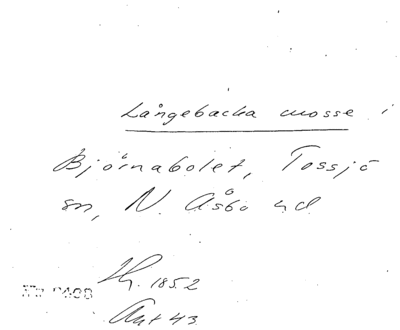 Långebacka mosse i
Björnabolet, Tossjö
sn, N. Åsbo hd
Hg. 1852
Ant 43